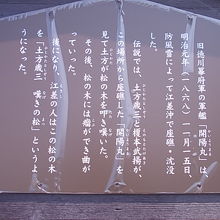 旧徳川幕府軍の軍艦「開陽丸」は、
明治元年(一八六八)一一月一五日、
防風雪によって江差沖で座礁、沈没
した。
伝説では、土方歳三と榎本武揚が、
この場所から座礁した「開陽丸」を
見て土方が松の木を叩き嘆いた。
その後、松の木には瘤ができ曲が
っていった。
後になり、江差の人はこの松の木
を「土方歳三 嘆きの松」というよ
うになった。